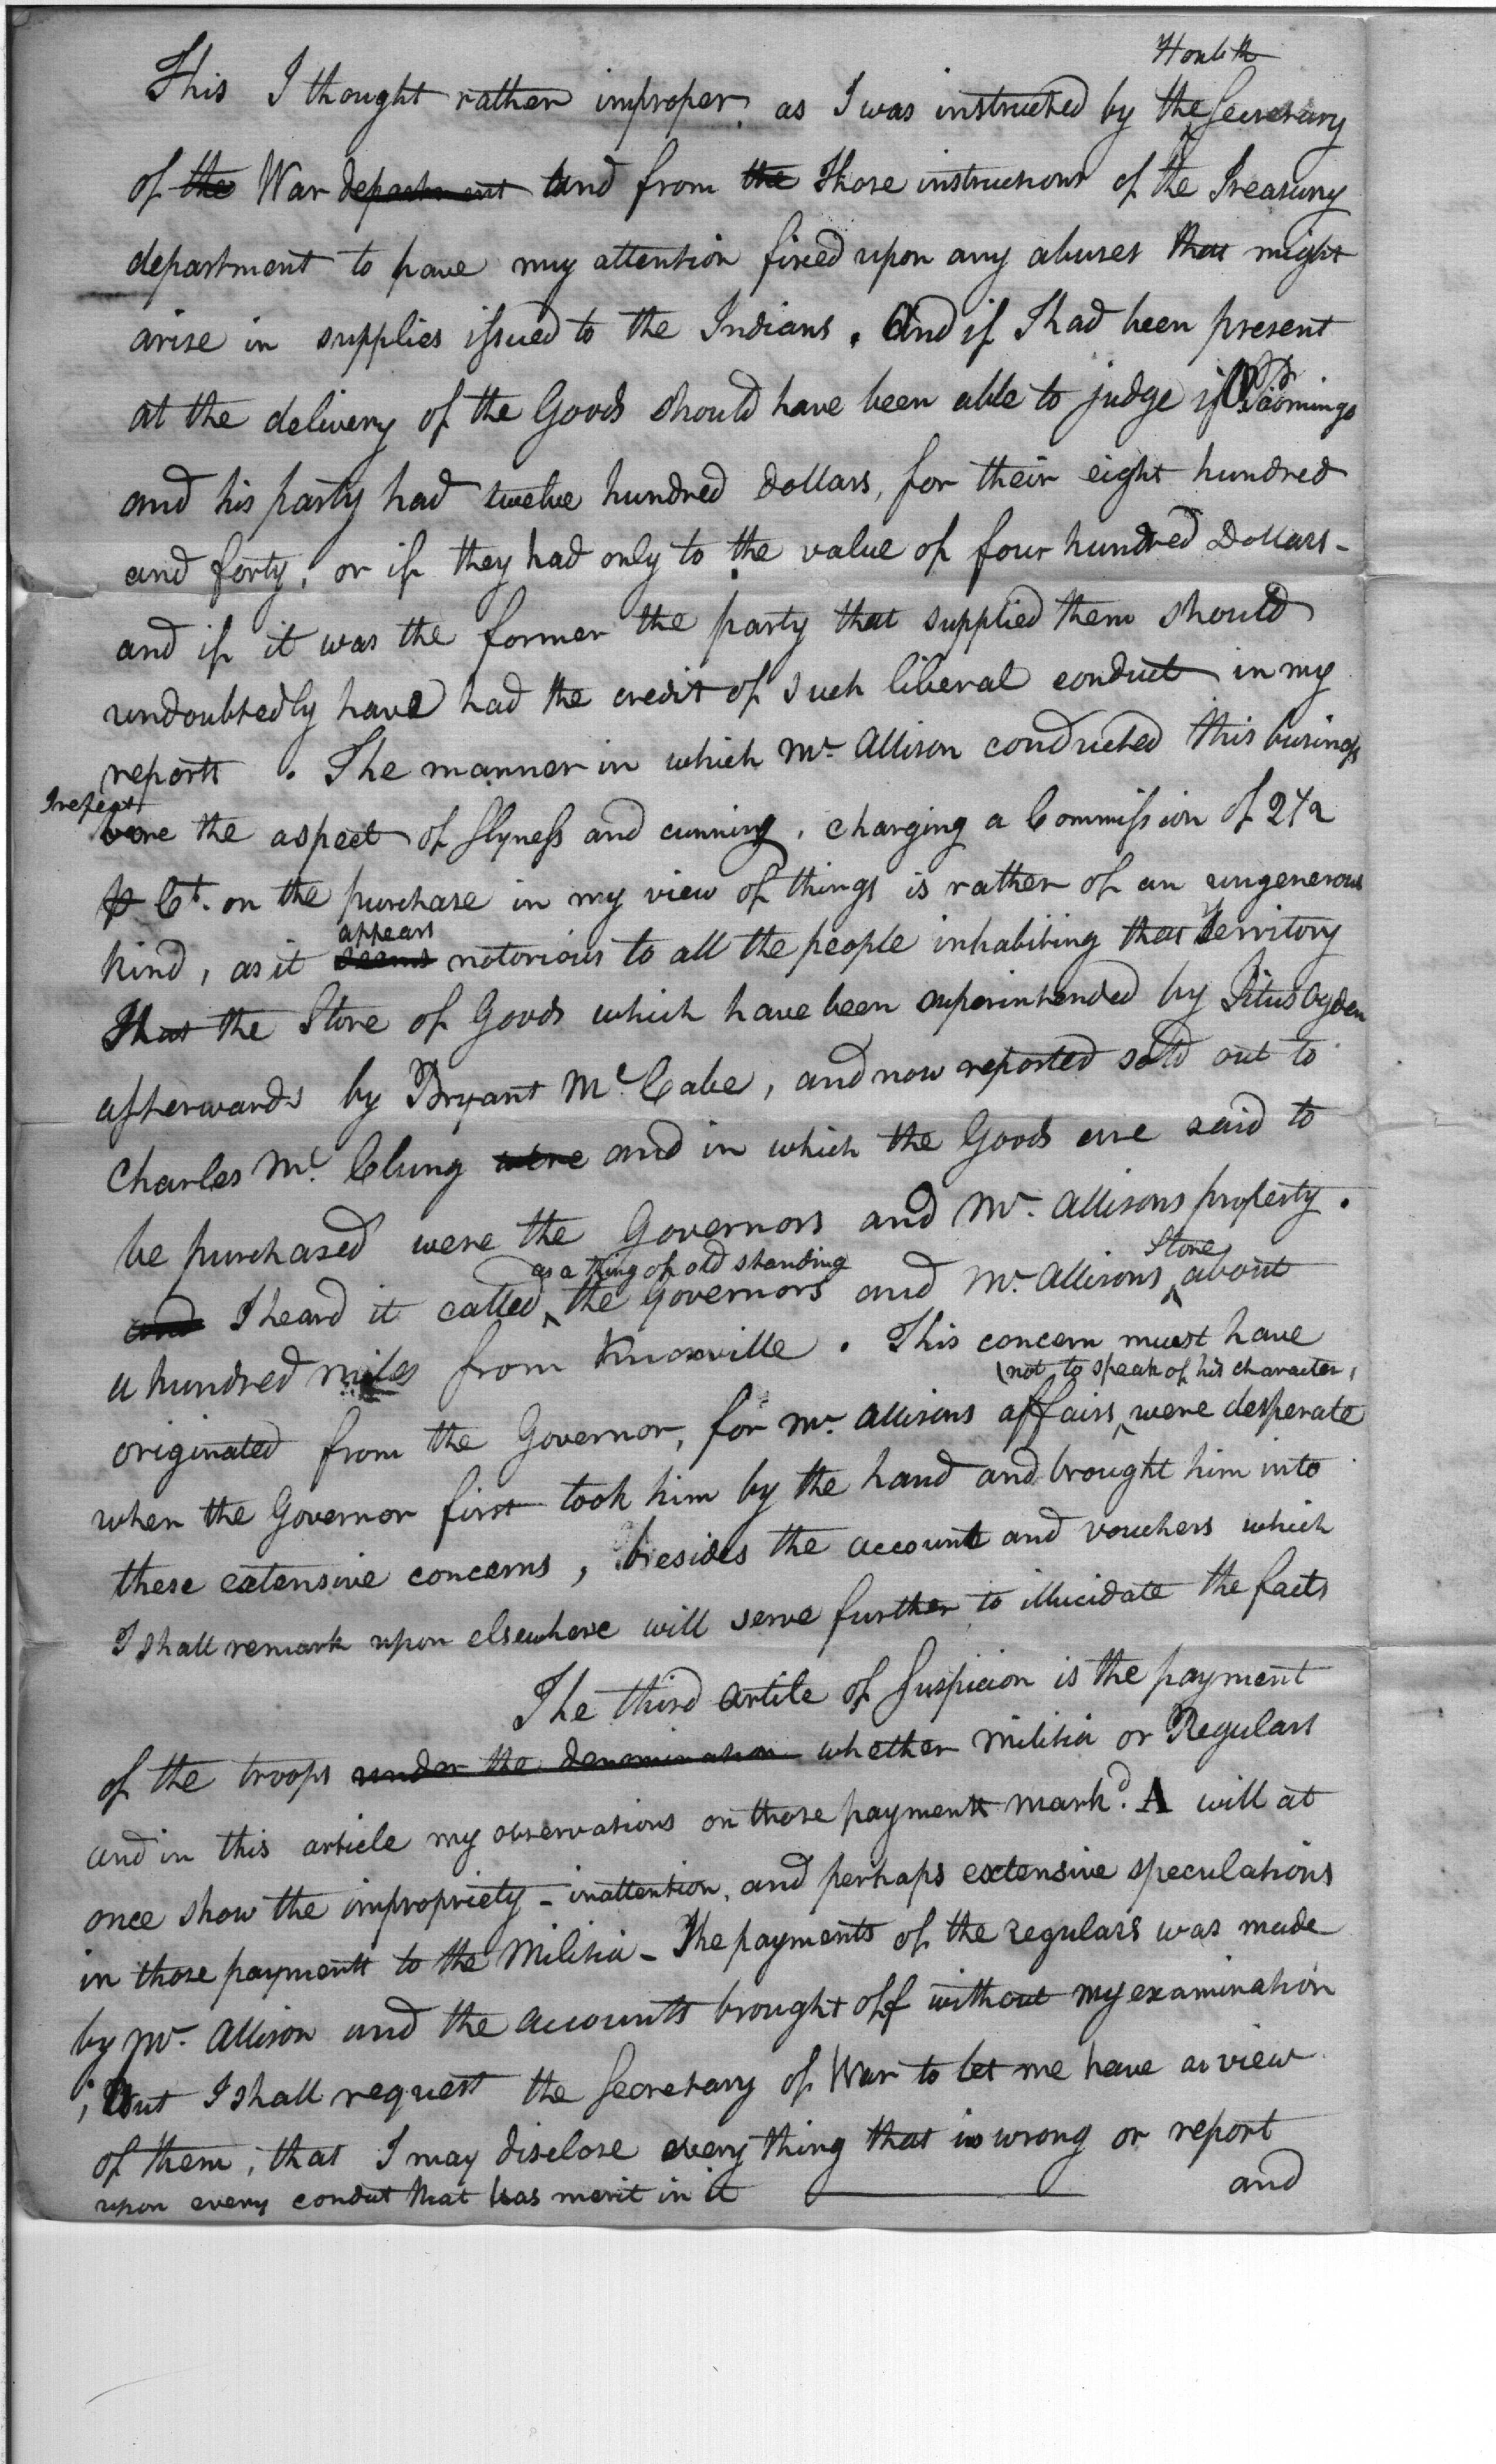 Honble th
This I thought rather improper, as I was instructed by the Secretary
of the War department and from the Those instructions of the Treasury
department to have my attention fixed upon any abuses that might
arise in supplies issued to the Indians. And if I had been present
at the delivery of the Goods should have been able to judge if
and his party had twelve hundred dollars, for their eight hundred
and forty, or if they had only to the value of four hundred Dollars -
and if it was the former the party that supplied them should
undoubtedly have had the credit of such liberal conduct in my
reports. The manner in which Mr. Allison conducted this business
I repeat
bore the aspect of slyness and cunning, charging a Commission of 2 1/2
P Ct. on the purchase in my view of things is rather of an ungenerous
appears
kind, as it seems notorious to all the people inhabiting that Territory
That the Store of Goods which have been superintended by Titus Ogden
afterwards by Bryant McCabe, and now reported sold out to
Charles McClung were and in which the Goods are said to
be purchased were the Governors and Mr. Allisons property.
as a thing of old standing Store
and I heard it called ^ the Governors and Mr. Allisons ^ about
a hundred miles from Knoxville. This concern must have
(not to speak of his character,
originated from the Governor, for Mr. Allisons affairs ^ were desperate
when the Governor first took him by the hand and brought him into
these extensive concerns, besides the account and vouchers which
I shall remark upon elsewhere will serve further to illucidate the facts
The third Artile of Suspicion is the payment
of the troops under the denomination whether Militia or Regulars
and in this article my observations on those payments mark'd. A will at
once show the impropriety - inattention, and perhaps extensive speculations
in those payments to the Militia - The payments of the regulars was made
by Mr. Allison and the accounts brought off without my examination
; But I shall request the Secretary of War to let me have a view
of them, that I may disclose every thing that is wrong or report
upon every conduct that has merit in it
and